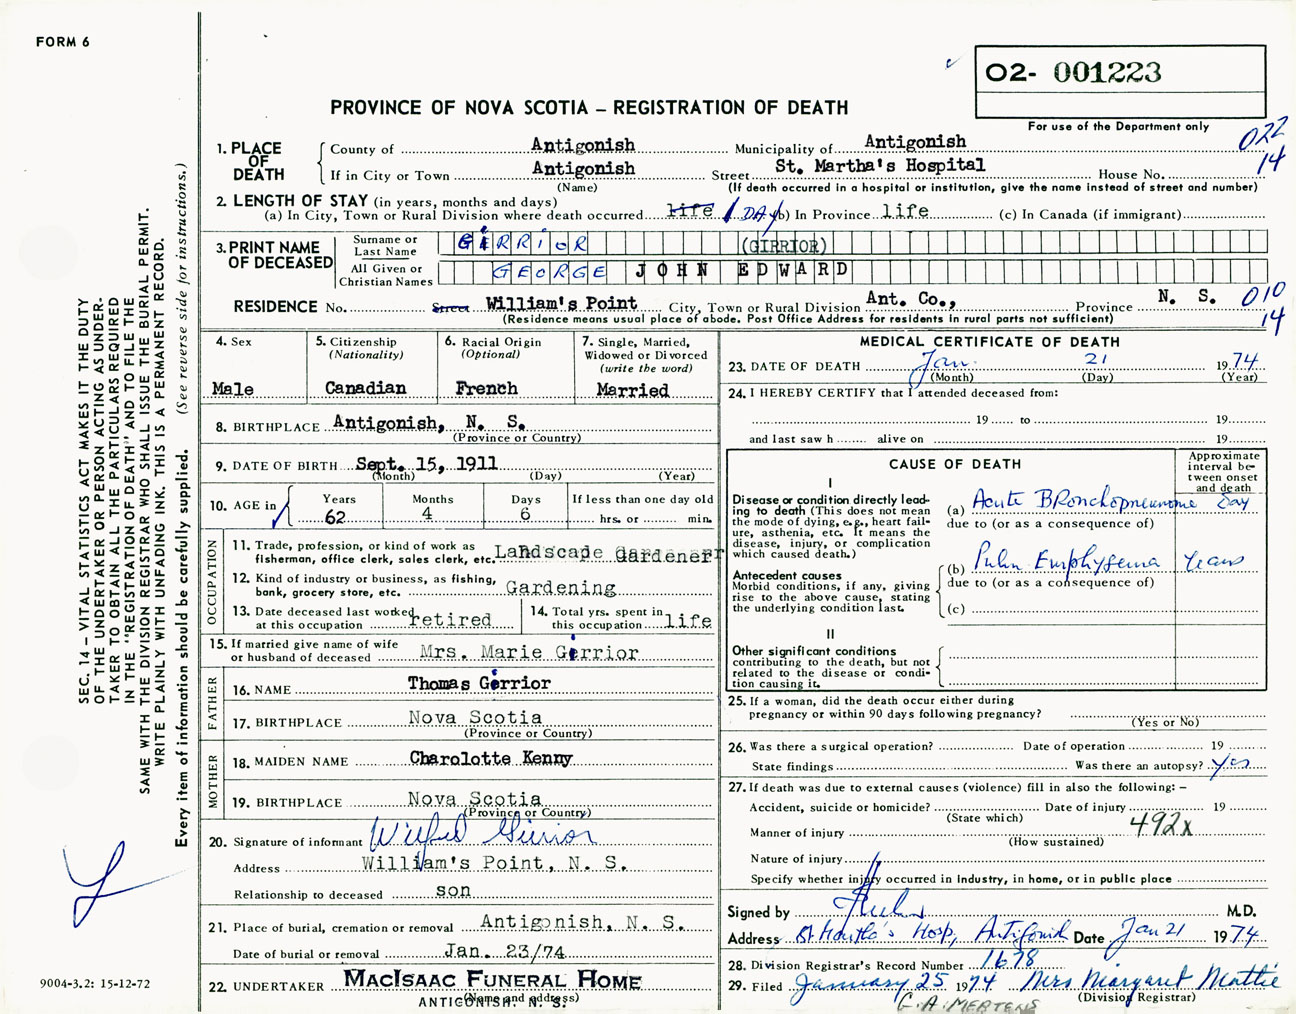 FORM 6
O2- 001223
PROVINCE OF NOVA SCOTIA – REGISTRATION OF DEATH
For use of the Department only
022
14
1. PLACE OF DEATH
County of Antigonish Municipality of Antigonish
If in City or Town Antigonish Street St. Martha's Hospital House No.
(Name) (If death occurred in a hospital or institution, give the name instead of street and number)
2. LENGTH OF STAY (in years, months and days)
(a) In City, Town or Rural Division where death occurred life 1 DAY (b) In Province life (c) In Canada (if immigrant)
3. PRINT NAME OF DECEASED
Surname or Last Name GIRRIOR (GIRRIOR)
All Given or Christian Names GEORGE JOHN EDWARD
RESIDENCE No. Street William's Point City, Town or Rural Division Ant. Co., Province N. S. 010
14
(Residence means usual place of abode. Post Office Address for residents in rural parts not sufficient)
4. Sex
Male
5. Citizenship
(Nationality)
Canadian
6. Racial Origin
(Optional)
French
7. Single, Married,
Widowed or Divorced
(write the word)
Married
8. BIRTHPLACE Antigonish, N. S.
(Province or Country)
9. DATE OF BIRTH Sept. 15, 1911
(Month) (Day) (Year)
10. AGE in
Years Months Days If less than one day old
62 4 6 hrs. or min.
OCCUPATION
11. Trade, profession, or kind of work as
fisherman, office clerk, sales clerk, etc. Landscape Gardener
12. Kind of industry or business, as fishing,
bank, grocery store, etc. Gardening
13. Date deceased last worked
at this occupation retired
14. Total yrs. spent in
this occupation life
15. If married give name of wife
or husband of deceased Mrs. Marie Girrior
FATHER
16. NAME Thomas Girrior
17. BIRTHPLACE Nova Scotia
(Province or Country)
MOTHER
18. MAIDEN NAME Charolotte Kenny
19. BIRTHPLACE Nova Scotia
(Province or Country)
20. Signature of informant Wilfred Girrior
Address William's Point, N. S.
Relationship to deceased son
21. Place of burial, cremation or removal Antigonish, N. S.
Date of burial or removal Jan. 23/74
22. UNDERTAKER MACISAAC FUNERAL HOME
(Name and address)
ANTIGONISH, N. S.
MEDICAL CERTIFICATE OF DEATH
23. DATE OF DEATH Jan. 21 1974
(Month) (Day) (Year)
24. I HEREBY CERTIFY that I attended deceased from:
19 to 19
and last saw h alive on 19
CAUSE OF DEATH
Approximate
interval be-
tween onset
and death
I
Disease or condition directly lead-
ing to death (This does not mean
the mode of dying, e.g., heart fail-
ure, asthenia, etc. It means the
disease, injury, or complication
which caused death.)
(a) Acute Bronchopneumonia Day
due to (or as a consequence of)
Antecedent causes
Morbid conditions, if any, giving
rise to the above cause, stating
the underlying condition last.
(b) Pulm Emphysema Years
due to (or as a consequence of)
(c)
II
Other significant conditions
contributing to the death, but not
related to the disease or condi-
tion causing it.
25. If a woman, did the death occur either during
pregnancy or within 90 days following pregnancy?
(Yes or No)
26. Was there a surgical operation? Date of operation 19
State findings Was there an autopsy? Yes
27. If death was due to external causes (violence) fill in also the following: –
Accident, suicide or homicide? Date of injury 19
(State which)
492x
Manner of injury
(How sustained)
Nature of injury
Specify whether injury occurred in industry, in home, or in public place
Signed by M.D.
Address St Martha's Hosp, Antigonish Date Jan 21 1974
28. Division Registrar's Record Number 1678
29. Filed January 25 1974 Mrs Margaret Mattie
(Division Registrar)
G.A. MERTENS
SEC. 14 – VITAL STATISTICS ACT MAKES IT THE DUTY
OF THE UNDERTAKER OR PERSON ACTING AS UNDER-
TAKER TO OBTAIN ALL THE PARTICULARS REQUIRED
IN THE "REGISTRATION OF DEATH" AND TO FILE THE
SAME WITH THE DIVISION REGISTRAR WHO SHALL ISSUE THE BURIAL PERMIT.
WRITE PLAINLY WITH UNFADING INK. THIS IS A PERMANENT RECORD.
Every item of information should be carefully supplied. (See reverse side for instructions.)
9004-3.2: 15-12-72